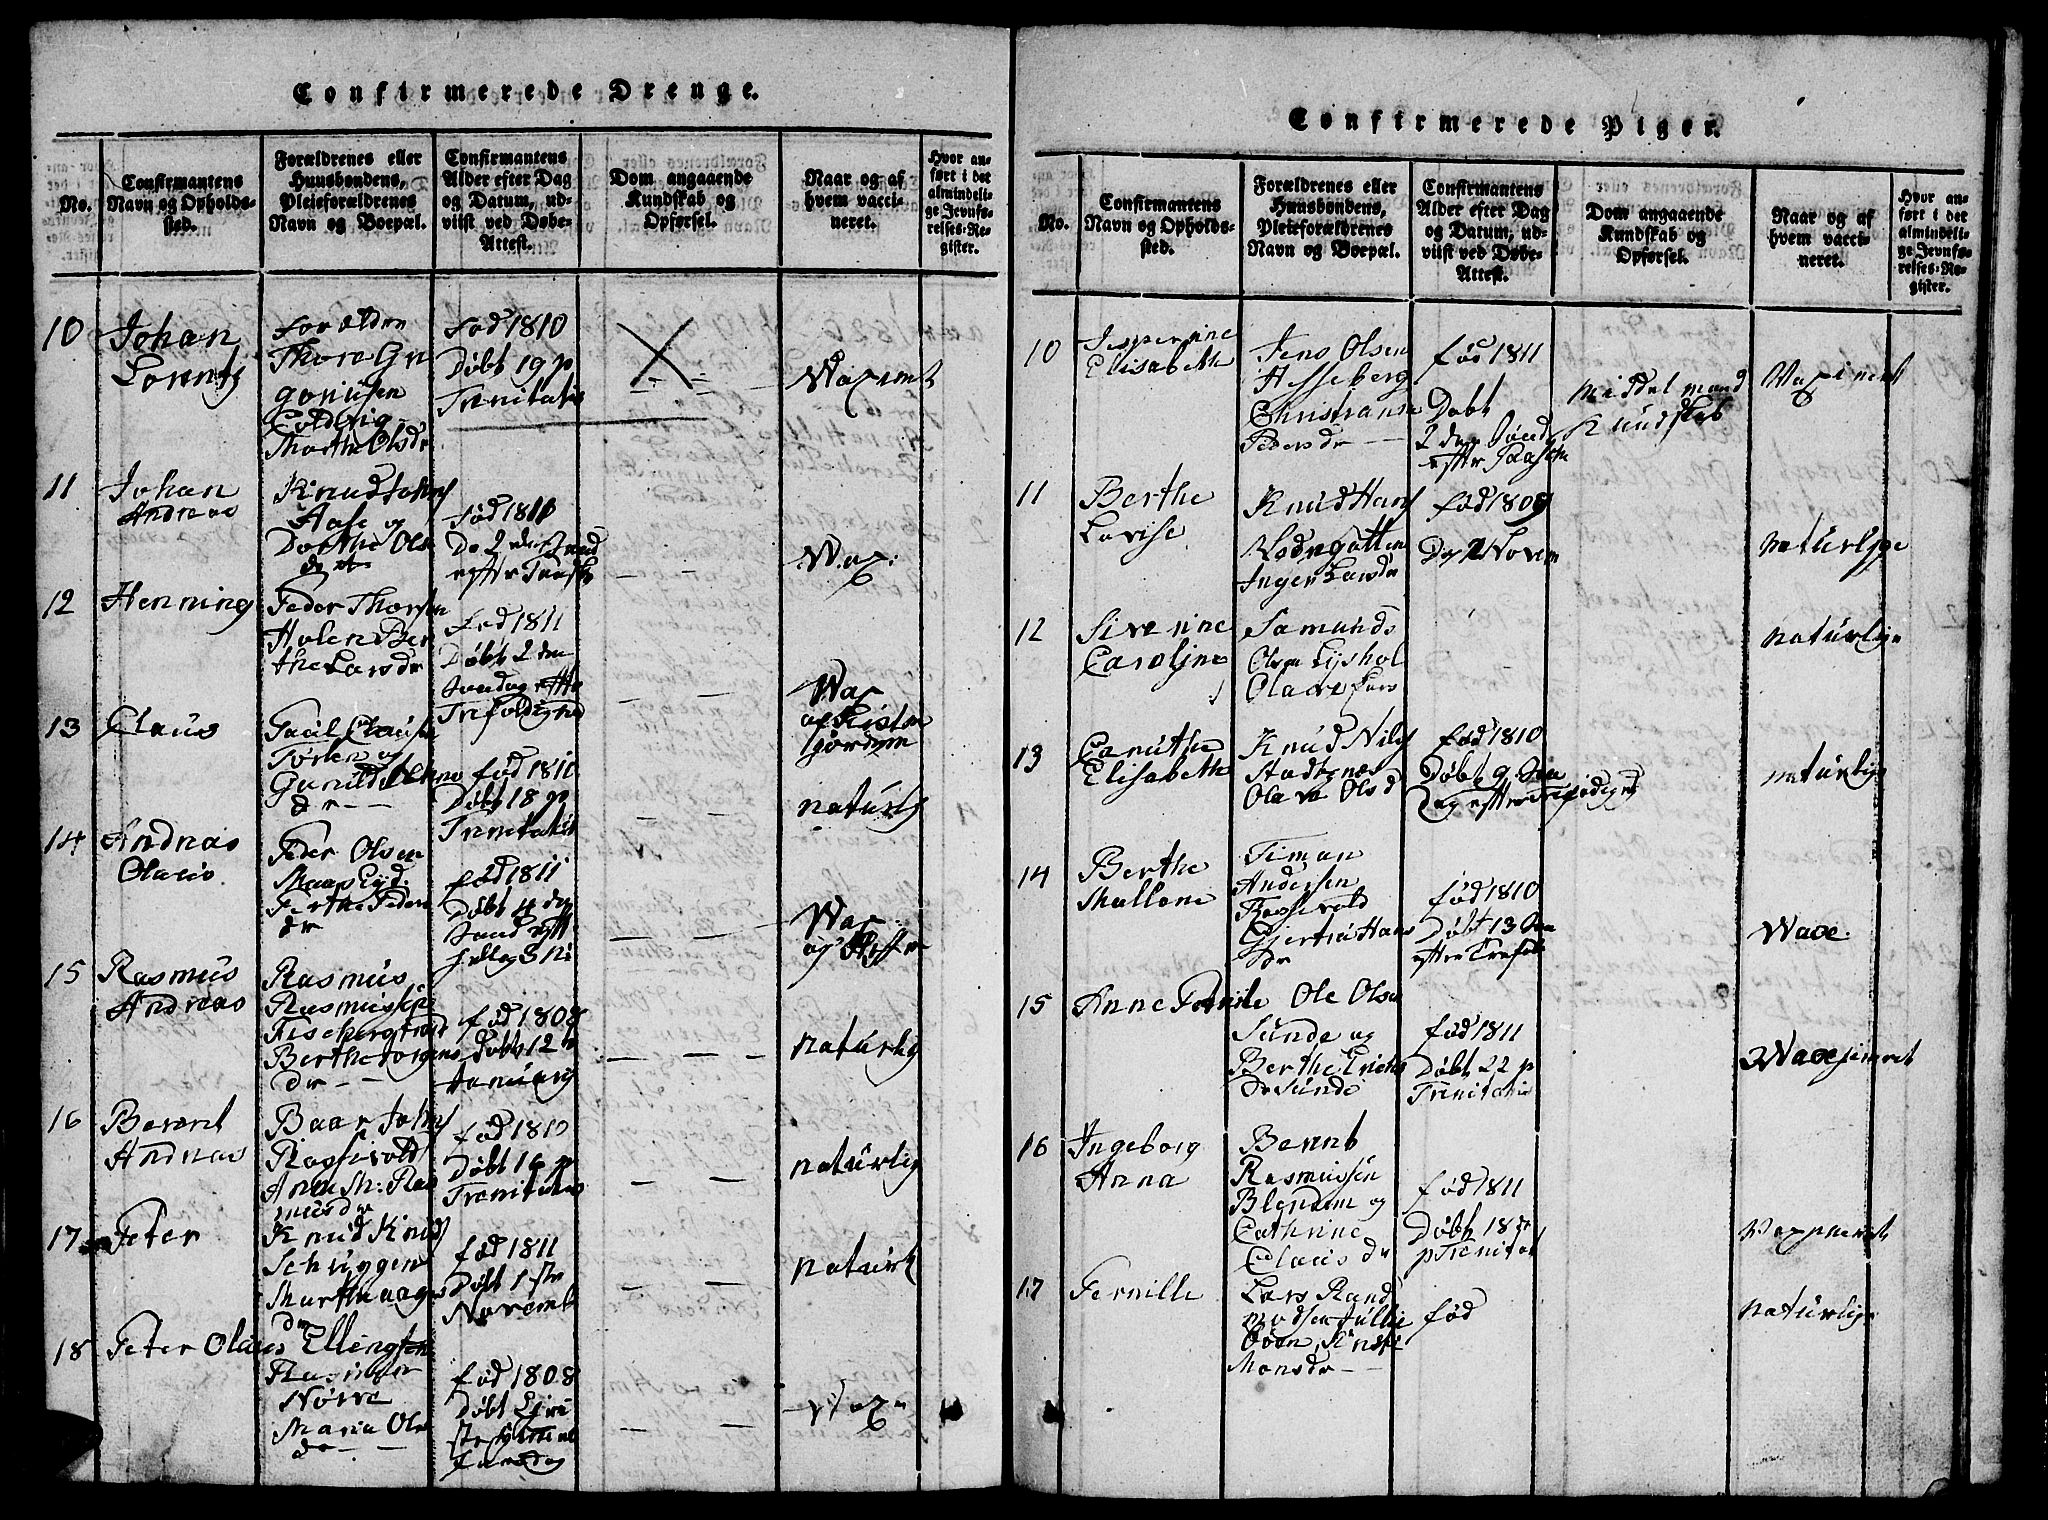 Confirmerede Drenge.
No.
Confirmantens
Navn og Opholds-
sted.
Forældrenes eller
Huusbondens,
Pleieforældrenes
Navn og Boepæl.
Confirmantens
Alder efter Dag
og Datum, ud-
viist ved Døbe-
Attest.
Dom angaaende
Kundskab og
Opførsel.
Naar og af
hvem vacci-
neret.
Hvor an-
ført i det
almindeli-
ge Jevnfø-
relses-Re-
gister.
10
Johan
Lorntz
Forældre
Thore Gre
goriusen
Marthe Olsdr
Fød 1810
Døbt 19 p
Trenitatis
Waxinert
11
Johan
Andreas
Knud Johns
Aase og
Dorthe Ols
dr
Fød 1810
Do 2 den
efter Paaske
Wax.
12
Henning
Peder Thorsen
Holen Ber
the Larsdr
Fød 1811
Døbt 2 den
Søndag efter
Trefoldighed
Wax
13
Claus
Paul Clausen
Torlen og
Gunild
dr - -
fød 1810
Døbt 18 p
Trenitatis
naturlig
14
Andreas
Olaus
Peder Olsen
Berthe Peders
dr
fød 1811
Døbt 4 de
Sønd eft
hellig 3 K
Wax
15
Rasmus
Andreas
Rasmus
Rasmussen
Berthe Jørgens
dr - -
fød 1808
Døbt 12 te
Januarij
naturlig
16
Berent
Andreas
Baar Johns
Røssevold
Anne M: Ras
musdr
fød 1810
Døbt 16 p
Trenitatis
naturlig
17
Peter
Knud Knuds
Schuggen
Marthe Aages
dr
fød 1811
Døbt 1ste
Novemb
naturl
18
Peter Olaus
Elling
Nørve
Maria Ols
dr - -
fød 1808
Døbt
Wax
Confirmerede Piger.
No.
Confirmantens
Navn og Opholds-
sted.
Forældrenes eller
Huusbondens,
Pleieforældrenes
Navn og Boepæl.
Confirmantens
Alder efter Dag
og Datum, ud-
viist ved Døbe-
Attest.
Dom angaaende
Kundskab og
Opførsel.
Naar og af
hvem vacci-
neret.
Hvor an-
ført i det
almindeli-
ge Jevnfø-
relses-Re-
gister.
10
Jesperine
Elisabeth
Jens Olsen
Hesseberg
Christianse
Pedersdr - -
fød 1811
Døbt
2 den Sønd
efter Paaske
Middelmaad
Kundskab
Vaxineret
11
Berthe
Lovise
Knud Hans
Inger Larsdr
fød 1808
Do 2 Novem
naturlige
12
Siverine
Caroline
Samunds
Olsen Lyshol
Olave Lars
naturlige
13
Canuthe
Elisabeth
Knud Nils
Stadsnæs
Olava Olsd
fød 1810
Døbt 9 Søn
Dag efter Trefoldighed
naturlige
14
Berthe
Mallene
Timan
Andersen
Røssevold
Gjertru Hans
dr
fød 1810
Døbt 13 Søn
efter Trefol
Wace.
15
Anne Pernile
Ole Olsen
Sunde og
Berthe Erichs
Dr Sunde
fød 1811
Døbt 22 p
Trenitatis
Wacejineret
16
Ingeborg
Anna
Bernt
Rasmussen
Blendem og
Cathrine
Claus dr
fød 1811
Døbt 18de
p Trenitat
Vaxineret
17
Pernille
Lars Rand
Monsdr - -
fød
naturlige